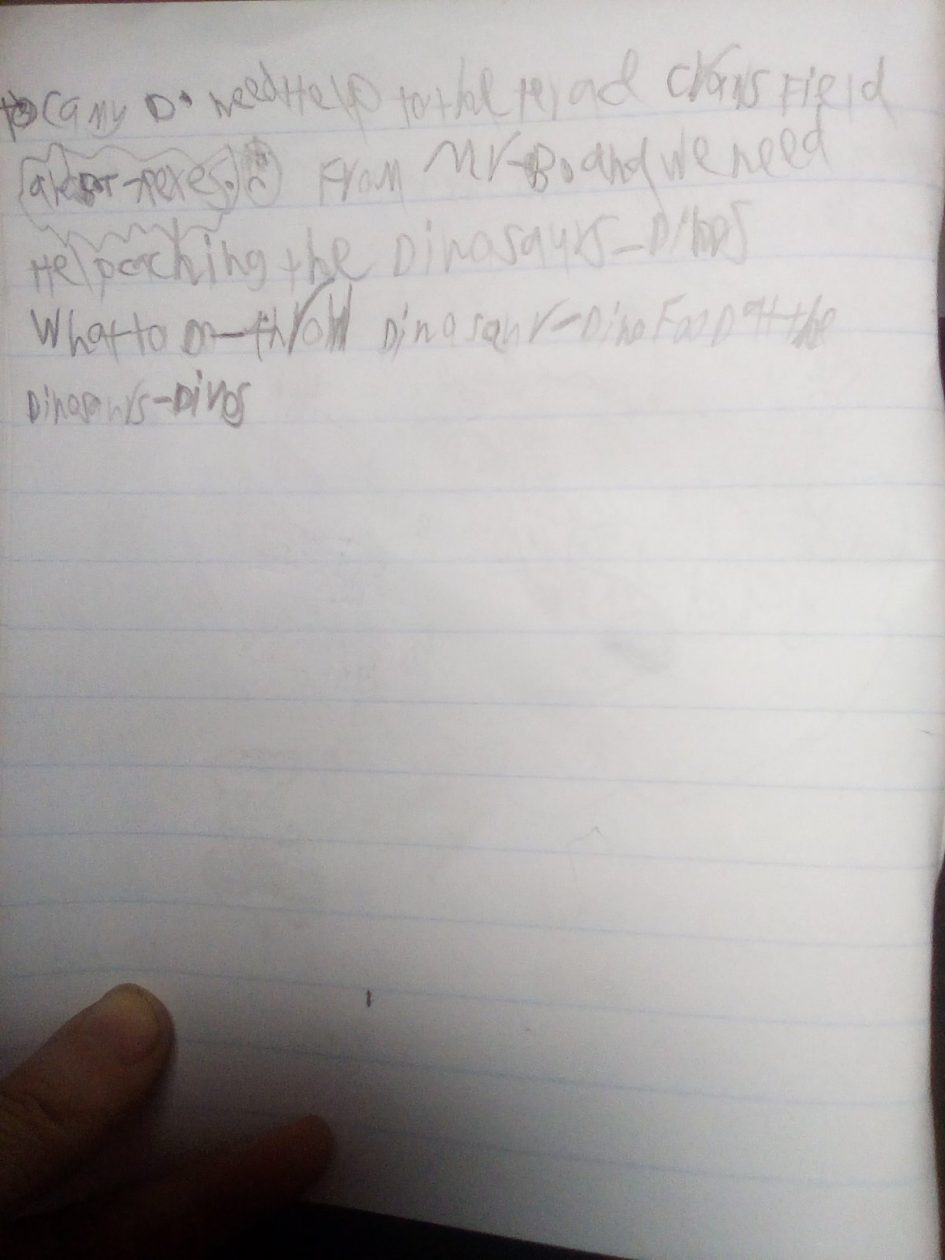 camy D. need Help to the read Crans Field
From Mr-B. and we need
Help caching the Dinosaurs-Dinos
What to D-throw Dinosaur-Dino Food at the
Dinosaurs-Dinos